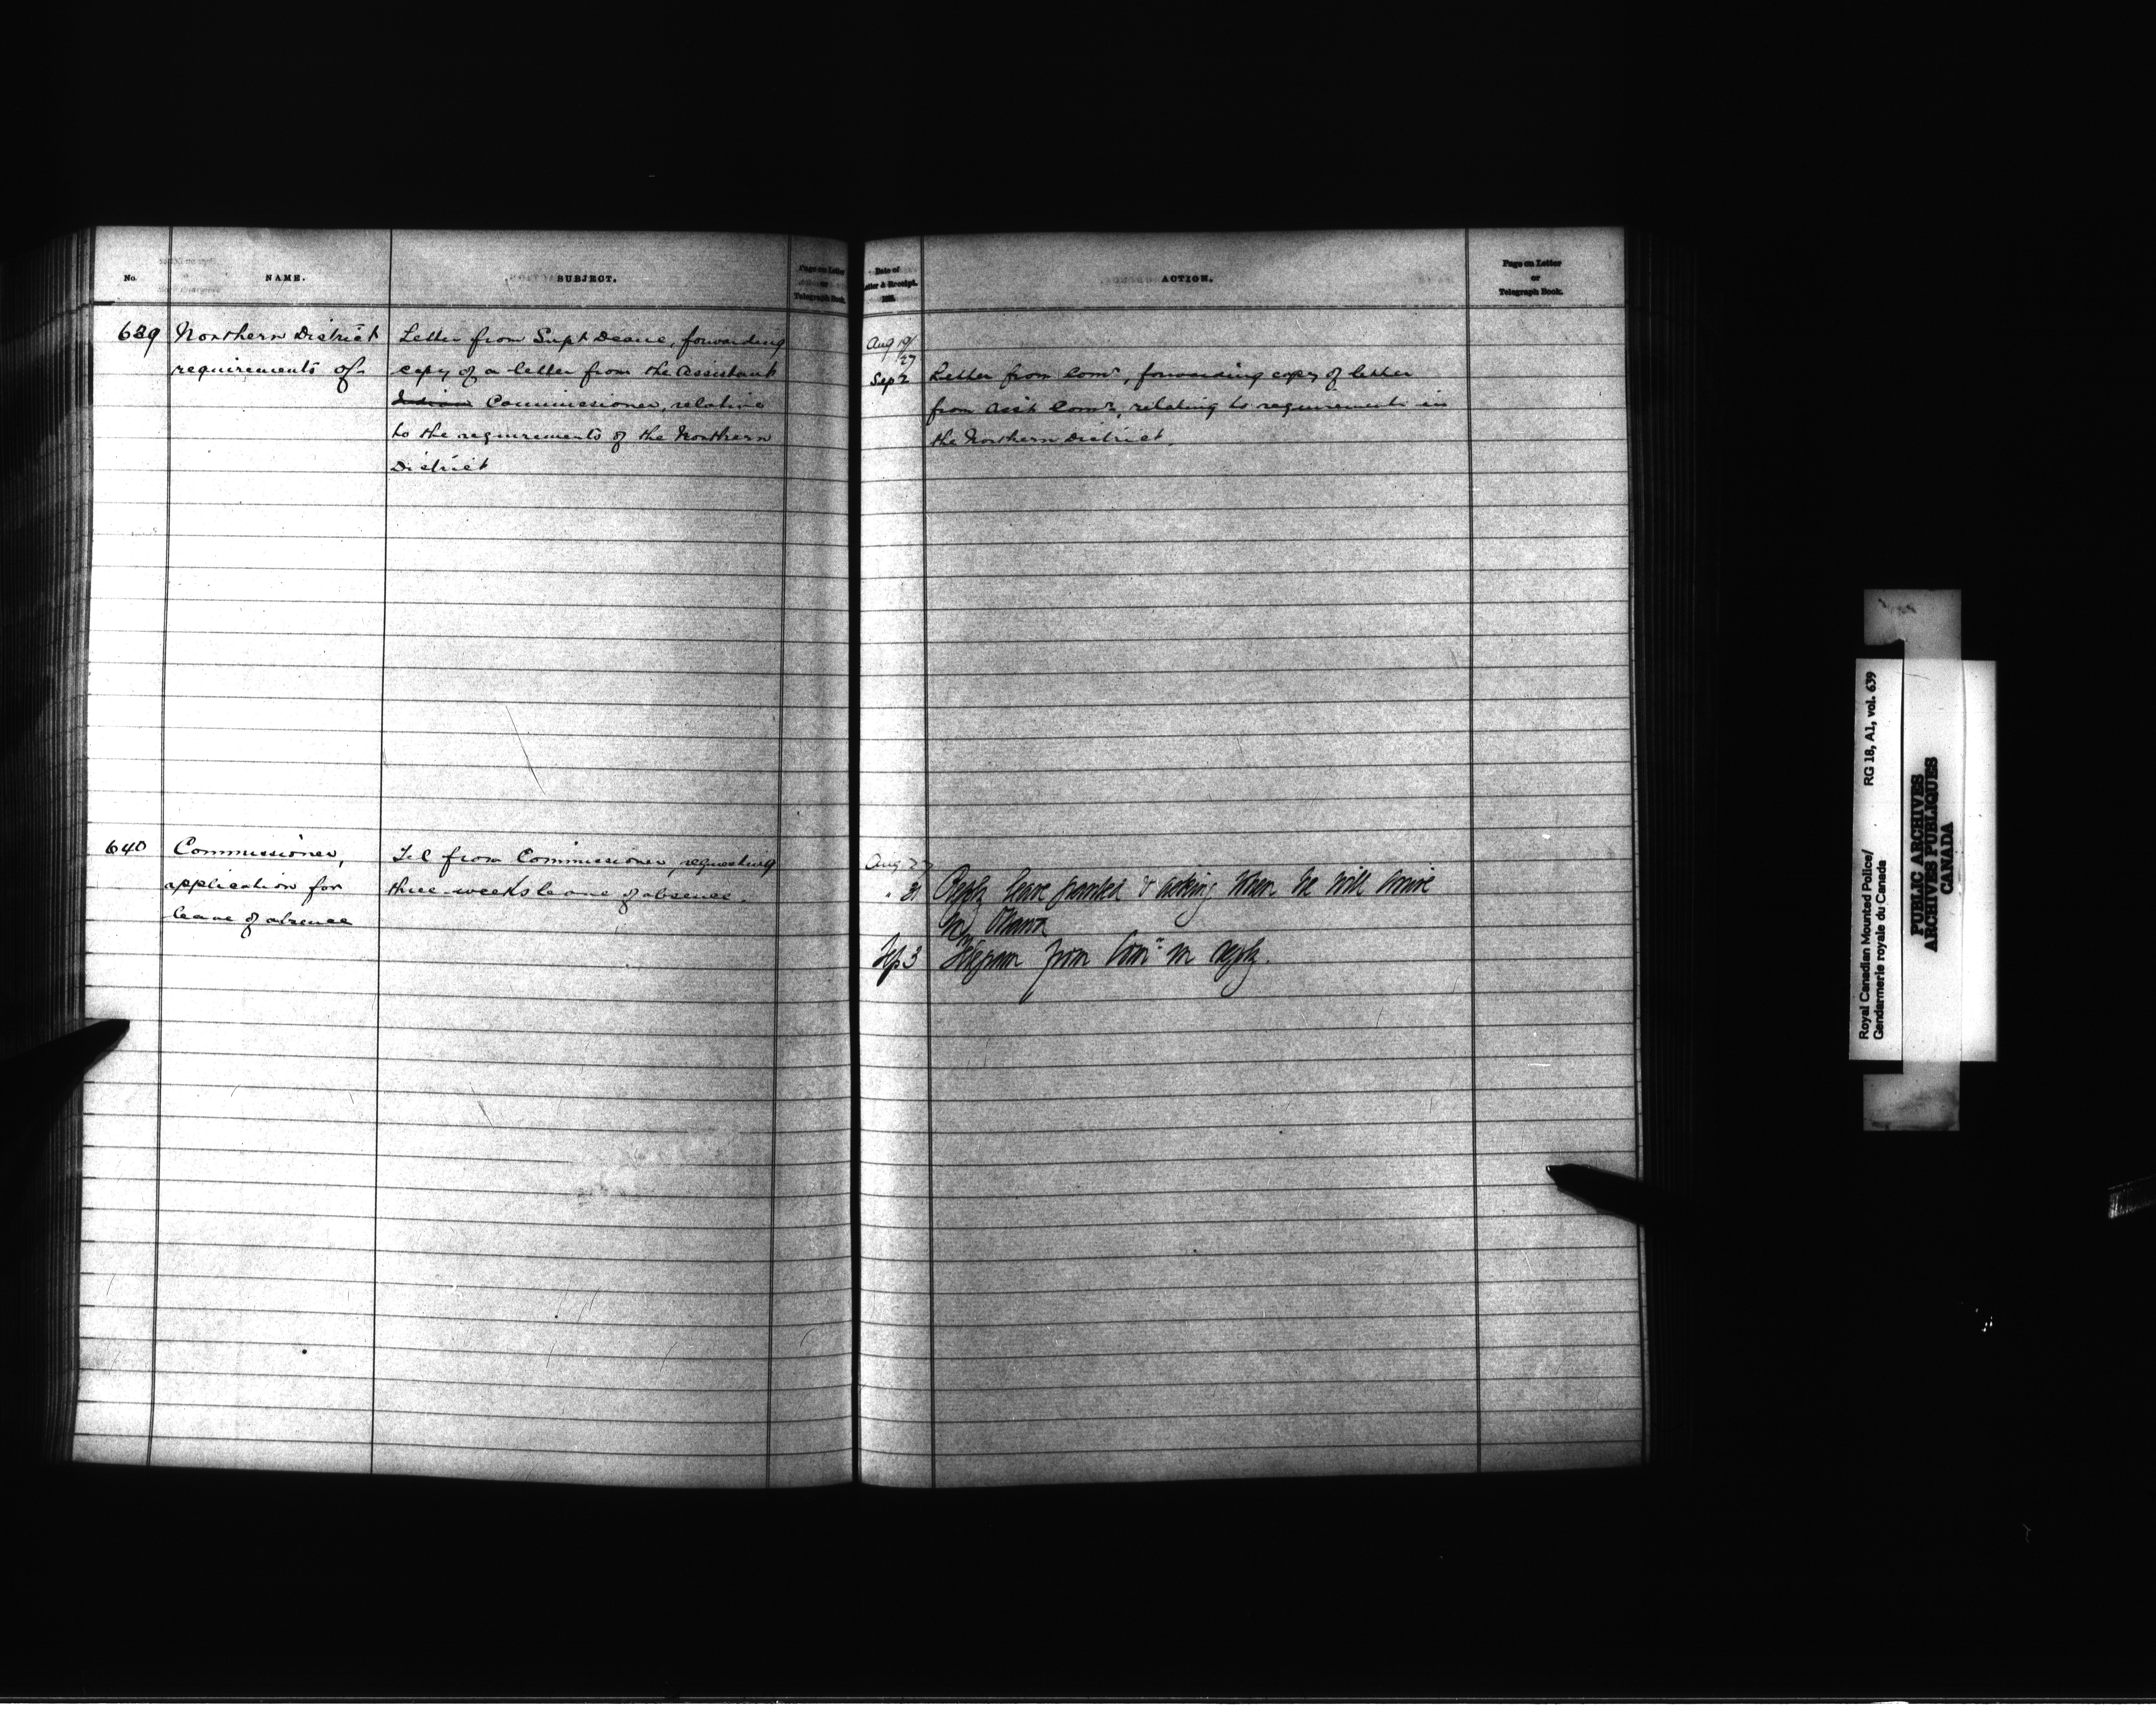 No. NAME. SUBJECT. Page on Letter or Telegraph Book.
639 Northern District Letter from Supt Deane, forwarding
requirements of copy of a letter from the Assistant
Indian Commissioner, relative
to the requirements of the Northern
District
640 Commissioner, Tel from Commissioner, requesting
application for three weeks leave of absence.
leave of absence
Date of Letter & Receipt. 188 . ACTION. Page on Letter or Telegraph Book.
Aug 19/27
Sep 2 Letter from Comr, forwarding copy of letter
from Asst Comr, relating to requirements in
the Northern District.
Aug 27
" 31 Reply leave granted & asking when he will arrive
in Ottawa
Sep 3 Telegram from Comr in reply.
Royal Canadian Mounted Police/ RG 18, A1, vol. 639
Gendarmerie royale du Canada
PUBLIC ARCHIVES
ARCHIVES PUBLIQUES
CANADA